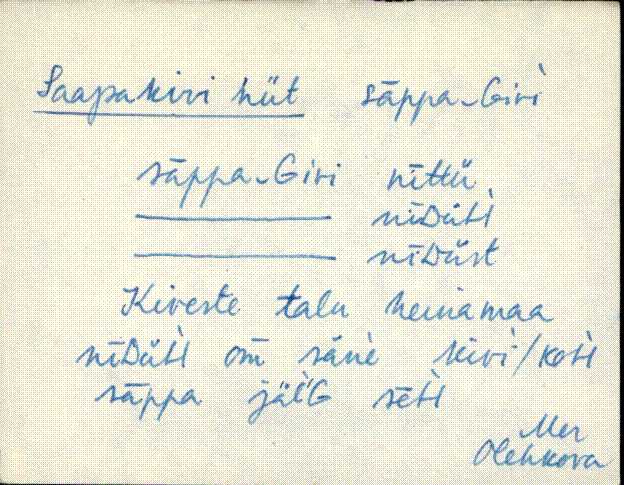 Saapakivi nüt säppa-Givi̬
säppa-Givi nittü
niDüti̬
niDüst
Kiveste talu heinamaa
niDüti̬ om säne kivi/koti̬
säppa jäl'G seti̬
Mer
Olehkova